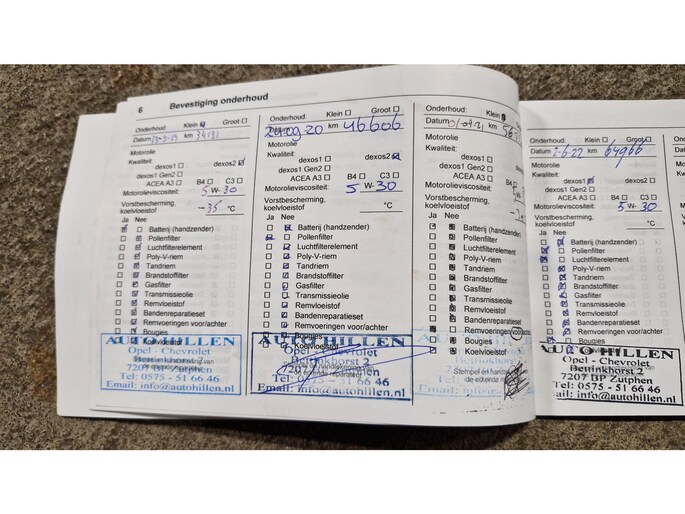 6 Bevestiging onderhoud
Onderhoud: Klein Groot
Datum km 34131
Motorolie
Kwaliteit:
dexos1 dexos2
dexos1 Gen2
ACEA A3 B4 C3
Motorolieviscositeit:
5 W- 30
Vorstbescherming,
koelvloeistof -35 °C
Ja Nee
Batterij (handzender)
Pollenfilter
Luchtfilterelement
Poly-V-riem
Tandriem
Brandstoffilter
Gasfilter
Transmissieolie
Remvloeistof
Bandenreparatieset
Remvoeringen voor/achter
Bougies
Koelvloeistof
AUTO HILLEN
Opel - Chevrolet
7207 BP Zutphen
Tel: 0575 - 51 66 46
Email: info@autohillen.nl
Onderhoud: Klein Groot
Datum 21-09-20 km 46606
Motorolie
Kwaliteit:
dexos1 dexos2
dexos1 Gen2
ACEA A3 B4 C3
Motorolieviscositeit:
5 W- 30
Vorstbescherming,
koelvloeistof °C
Ja Nee
Batterij (handzender)
Pollenfilter
Luchtfilterelement
Poly-V-riem
Tandriem
Brandstoffilter
Gasfilter
Transmissieolie
Remvloeistof
Bandenreparatieset
Remvoeringen voor/achter
Bougies
Koelvloeistof
AUTO HILLEN
Opel - Chevrolet
Dettinkhorst 2
7207
Tel: 0575 - 51 66 46
Email: info@autohillen.nl
Onderhoud: Klein
Datum km
Motorolie
Kwaliteit:
dexos1
dexos1 Gen2
ACEA A3 B4
Motorolieviscositeit:
5 W-
Vorstbescherming,
koelvloeistof
Ja Nee
Batterij (handzender)
Pollenfilter
Luchtfilterelement
Poly-V-riem
Tandriem
Brandstoffilter
Gasfilter
Transmissieolie
Remvloeistof
Bandenreparatieset
Remvoeringen voor/achter
Bougies
Koelvloeistof
Onderhoud: Klein Groot
Datum 2-6-22 km 64966
Motorolie
Kwaliteit:
dexos1 dexos2
dexos1 Gen2
ACEA A3 B4 C3
Motorolieviscositeit:
5 W- 30
Vorstbescherming,
koelvloeistof °C
Ja Nee
Batterij (handzender)
Pollenfilter
Luchtfilterelement
Poly-V-riem
Tandriem
Brandstoffilter
Gasfilter
Transmissieolie
Remvloeistof
Bandenreparatieset
Remvoeringen voor/achter
Bougies
AUTO HILLEN
Opel - Chevrolet
Dettinkhorst 2
7207 BP Zutphen
Tel: 0575 - 51 66 46
Email: info@autohillen.nl